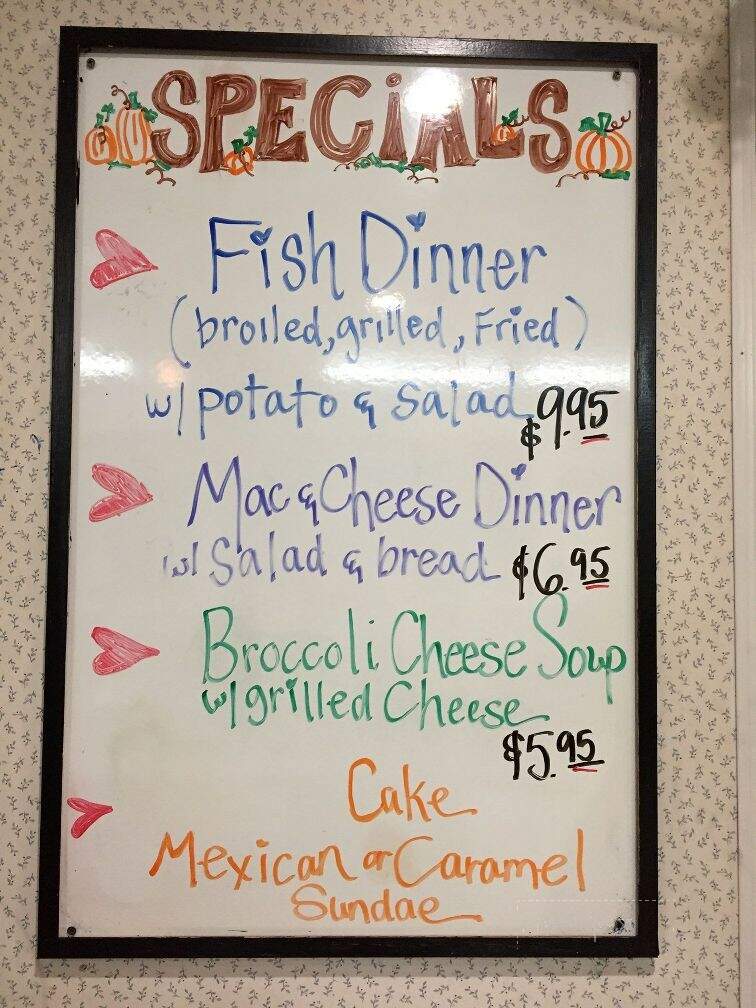 SPECiALS
Fish Dinner
(broiled, grilled, Fried)
w/ potato & salad $9.95
Mac & Cheese Dinner
w/ Salad & bread $6.95
Broccoli Cheese Soup
w/ grilled Cheese
$5.95
Cake
Mexican or Caramel
Sundae